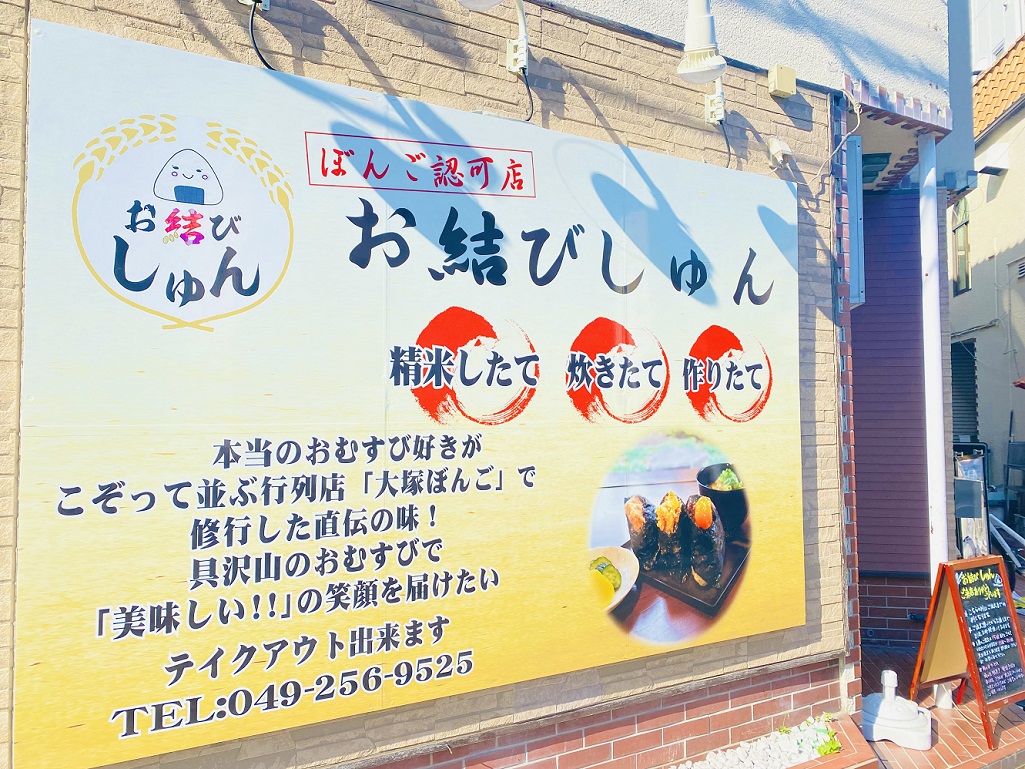 お結び
しゅん
ぼんご認可店
お結びしゅん
精米したて
炊きたて
作りたて
本当のおむすび好きが
こぞって並ぶ行列店「大塚ぼんご」で
修行した直伝の味！
具沢山のおむすびで
「美味しい!!」の笑顔を届けたい
テイクアウト出来ます
TEL:049-256-9525
お結びしゅん